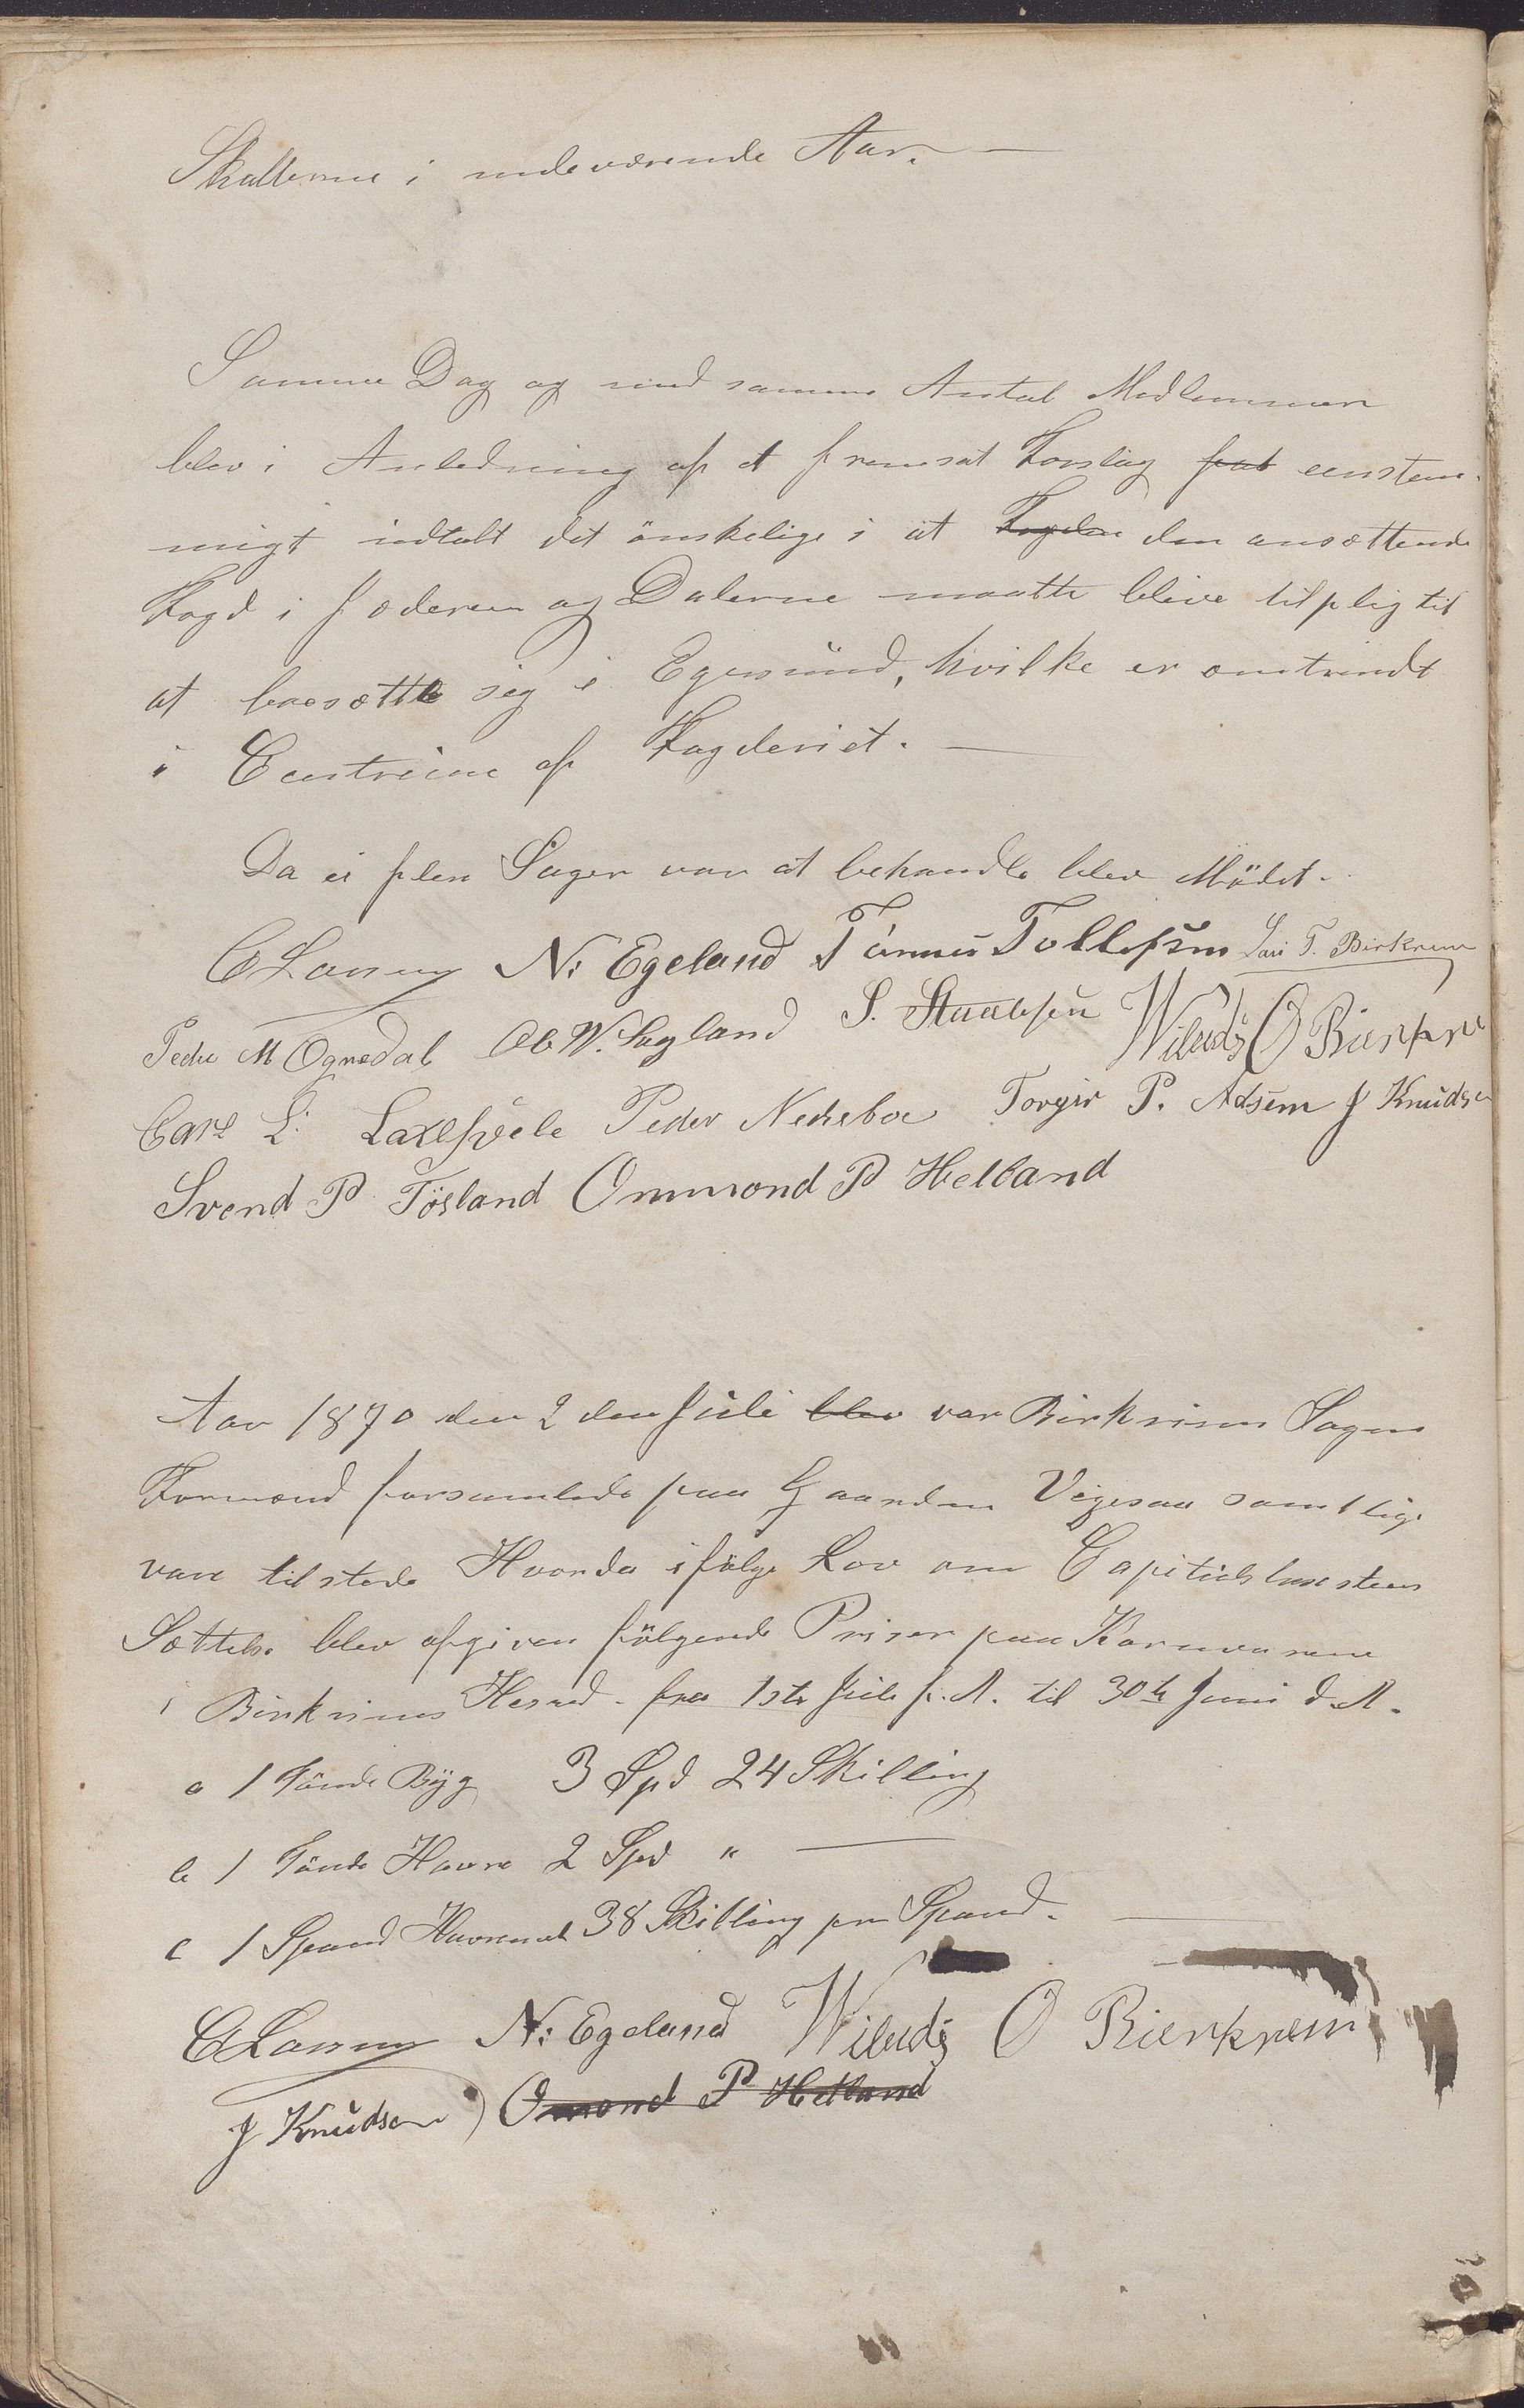 Skatterne i indeværende Aar. —
Samme Dag og med samme Antal Medlemmer
blev i Anledning af et fremsat Forslag eenstem-
migt udtalt det önskelige i at Fogden den ansættende
Fogd i Jæderen og Dalerne maatte blive tilpligtit
at bosætte sig i Egersund, hvilke er omtrindt
i Centrum af Fogderiet. —
Da ei flere Sager var at behandle blev Mödet.
N: Egeland Tönnes Tollefsen T. Birkrem
Peder M Ognedal Ole W. Lagland S. Staalesen O Bierkre
Carl L: Laxesvele Peder Nedrebøe Torger P. Adsem J Knudsen
Svend P Tösland Ommond P Helland
Aar 1870 den 2 den Juli blev var Birkrims Sogns
Formænd forsamlede paa Gaarden Vigesaa samtlige
vare tilstede Hvorda ifölge Lov om
Sættelse blev afgiven fölgende Priser paa Kornvarene
i Birkrims Herred. fra 1ste Juli f. A. til 30te Juni d. A.
a 1 Tönde Byg 3 Spd 24 Skilling
b 1 Tönde Havre 2 Spd " —
c 1 Spand Havremel 38 Skilling pr Spand. —
N: Egeland O Bierkrem
J Knudsen Omond P Helland